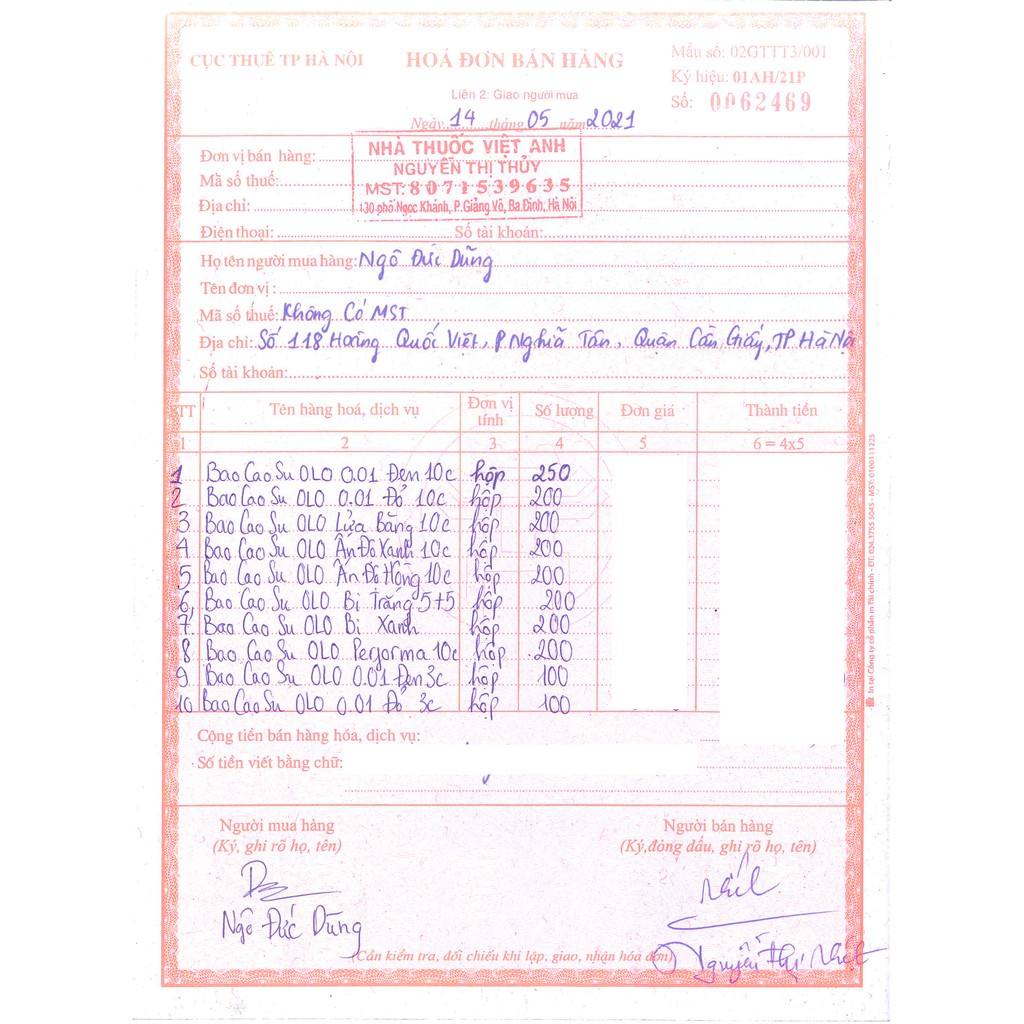 CỤC THUẾ TP HÀ NỘI
HOÁ ĐƠN BÁN HÀNG
Mẫu số: 02GTTT3/001
Ký hiệu: 01AH/21P
Liên 2: Giao người mua
Số: 0062469
Ngày 14 tháng 05 năm 2021
NHÀ THUỐC VIỆT ANH
NGUYỄN THỊ THỦY
MST: 8071539635
130 phố Ngọc Khánh, P.Giảng Võ, Ba Đình, Hà Nội
Đơn vị bán hàng:
Mã số thuế:
Địa chỉ:
Điện thoại: Số tài khoản:
Họ tên người mua hàng: Ngô Đức Dũng
Tên đơn vị :
Mã số thuế: Không Có MST
Địa chỉ: Số 118 Hoàng Quốc Việt, P Nghĩa Tân, Quận Cầu Giấy, TP Hà Nội
Số tài khoản:
STT Tên hàng hoá, dịch vụ Đơn vị tính Số lượng Đơn giá Thành tiền
1 2 3 4 5 6 = 4x5
1 Bao Cao Su OLO 0.01 Đen 10c hộp 250
2 Bao Cao Su OLO 0.01 Đỏ 10c hộp 200
3 Bao Cao Su OLO Lửa Băng 10c hộp 200
4 Bao Cao Su OLO Ấn Độ Xanh 10c hộp 200
5 Bao Cao Su OLO Ấn Độ Hồng 10c hộp 200
6, Bao Cao Su OLO Bi Trắng 5+5 hộp 200
7. Bao Cao Su OLO Bi Xanh hộp 200
8 Bao Cao Su OLO Performa 10c hộp 200
9 Bao Cao Su OLO 0.01 Đen 3c hộp 100
10 Bao Cao Su OLO 0.01 Đỏ 3c hộp 100
Cộng tiền bán hàng hóa, dịch vụ:
Số tiền viết bằng chữ:
Người mua hàng
(Ký, ghi rõ họ, tên)
Người bán hàng
(Ký,đóng dấu, ghi rõ họ, tên)
Ngô Đức Dũng
Nguyễn Thị
(Cần kiểm tra, đối chiếu khi lập, giao, nhận hóa đơn)